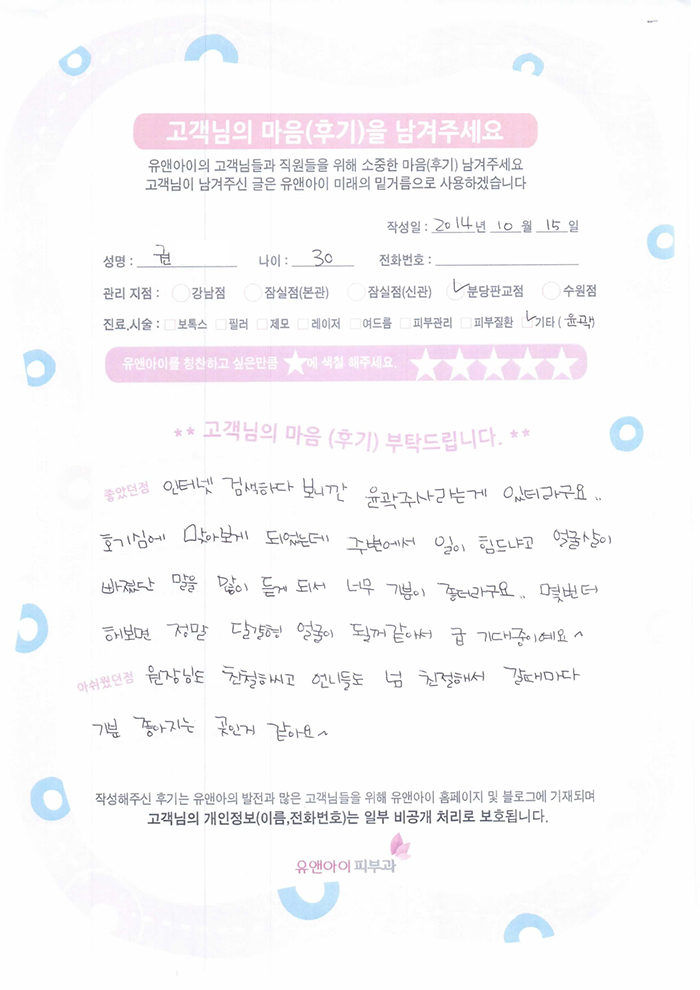 고객님의 마음(후기)을 남겨주세요
유앤아이의 고객님들과 직원들을 위해 소중한 마음(후기) 남겨주세요
고객님이 남겨주신 글은 유앤아이 미래의 밑거름으로 사용하겠습니다
작성일 : 2014년 10월 15일
성명 : 권 나이 : 30 전화번호 :
관리 지점 : 강남점 잠실점(본관) 잠실점(신관) 분당판교점 수원점
진료.시술 : 보톡스 필러 제모 레이저 여드름 피부관리 피부질환 기타 ( 윤곽)
유앤아이를 칭찬하고 싶은만큼 ★에 색칠 해주세요. ★★★★★
** 고객님의 마음 (후기) 부탁드립니다. **
좋았던점 인터넷 검색하다 보니깐 윤곽주사라는게 있터라구요..
호기심에 맞아보게 되었는데 주변에서 일이 힘드냐고 얼굴살이
빠졌단 말을 많이 듣게 되서 너무 기분이 좋터라구요.. 몇번더
해보면 정말 달걀형 얼굴이 될꺼같아서 급 기대중이예요~
아쉬웠던점 원장님도 친절하시고 언니들도 넘 친절해서 갈때마다
기분 좋아지는 곳인거 같아요~
작성해주신 후기는 유앤아의 발전과 많은 고객님들을 위해 유앤아이 홈페이지 및 블로그에 기재되며
고객님의 개인정보(이름,전화번호)는 일부 비공개 처리로 보호됩니다.
유앤아이 피부과